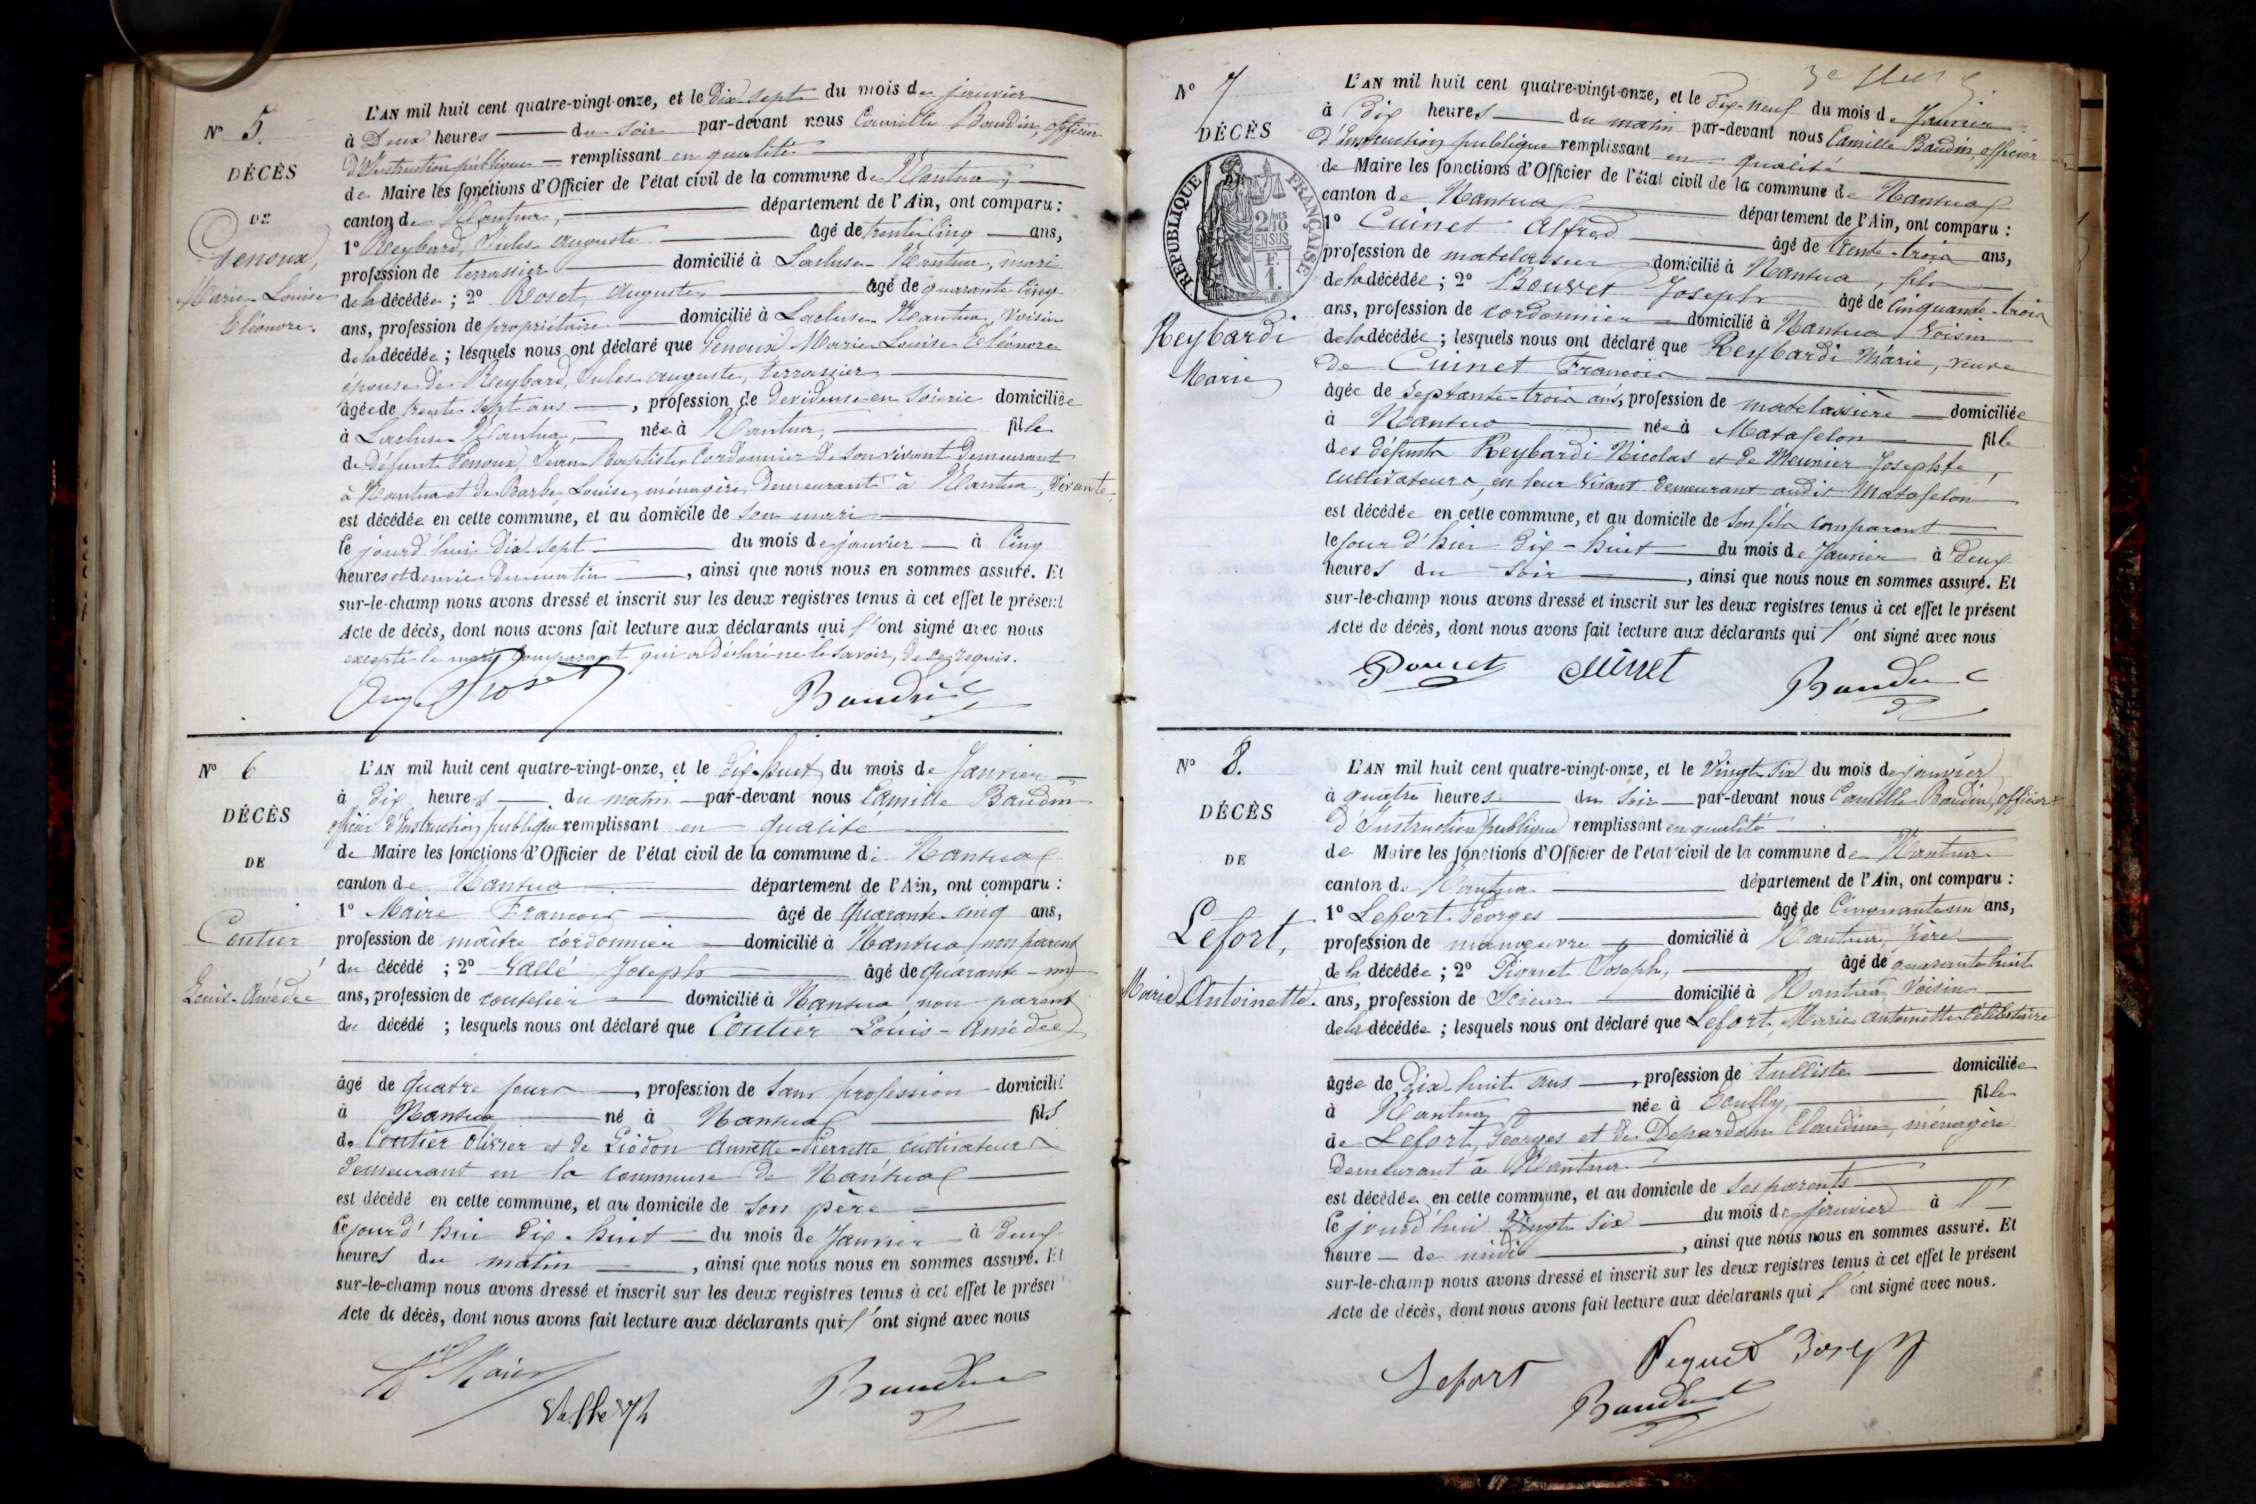 N° 5.
DÉCÈS
DE
Genoux,
Marie Louise
Eléonore.
L'AN mil huit cent quatre-vingt-onze, et le Dix sept du mois de janvier
à Deux heures du soir par-devant nous Camille Baudin, officier
d'Instruction publique remplissant en qualité
de Maire les fonctions d'Officier de l'état civil de la commune de Nantua,
canton de Nantua, département de l'Ain, ont comparu :
1° Reybard, Jules Auguste âgé de trente cinq ans,
profession de terrassier domicilié à Lacluse Nantua, mari
de la décédée ; 2° Roset, Auguste âgé de quarante cinq
ans, profession de propriétaire domicilié à Lacluse Nantua, voisin
de la décédée ; lesquels nous ont déclaré que Genoux Marie Louise Eléonore
épouse de Reybard, Jules Auguste, terrassier
âgée de trente sept ans, profession de devideuse en soierie domiciliée
à Lacluse Nantua, née à Nantua, fille
de défunt Genoux, Jean Baptiste cordonnier de son vivant demeurant
à Nantua et de Barbe Louise, ménagère, demeurant à Nantua, vivante,
est décédée en cette commune, et au domicile de son mari
le jourd'hui dix sept du mois de janvier à cinq
heures et demie du matin, ainsi que nous nous en sommes assuré. Et
sur-le-champ nous avons dressé et inscrit sur les deux registres tenus à cet effet le présent
Acte de décès, dont nous avons fait lecture aux déclarants qui l'ont signé avec nous
excepté le mari comparant qui a déclaré ne le savoir, de ce requis.
Aug Roset Baudin
N° 6
DÉCÈS
DE
Coutier
Louis-Amédée
L'AN mil huit cent quatre-vingt-onze, et le dix-huit du mois de Janvier
à dix heures du matin par-devant nous Camille Baudin
officier d'Instruction publique remplissant en qualité
de Maire les fonctions d'Officier de l'état civil de la commune de Nantua
canton de Nantua département de l'Ain, ont comparu :
1° Maire François âgé de quarante-cinq ans,
profession de maître cordonnier domicilié à Nantua, non parent
du décédé ; 2° Gallé Joseph âgé de quarante-un
ans, profession de coutelier domicilié à Nantua non parent
du décédé ; lesquels nous ont déclaré que Coutier Louis-Amédée
âgé de quatre jours, profession de sans profession domicilié
à Nantua né à Nantua fils
de Coutier Olivier et de Annette-Pierrette cultivateurs
demeurant en la commune de Nantua
est décédé en cette commune, et au domicile de son père
le jourd'hui dix-huit du mois de Janvier à deux
heures du matin, ainsi que nous nous en sommes assuré. Et
sur-le-champ nous avons dressé et inscrit sur les deux registres tenus à cet effet le présent
Acte de décès, dont nous avons fait lecture aux déclarants qui l'ont signé avec nous
Maire Baudin
N° 7
DÉCÈS
RÉPUBLIQUE FRANÇAISE
2/10
EN SUS
F.
1.
Reybardi
Marie
L'AN mil huit cent quatre-vingt-onze, et le dix-neuf du mois de Janvier
à dix heures du matin par-devant nous Camille Baudin, officier
d'Instruction publique remplissant en qualité
de Maire les fonctions d'Officier de l'état civil de la commune de Nantua
canton de Nantua département de l'Ain, ont comparu :
1° Cuinet Alfred âgé de trente-trois ans,
profession de matelassier domicilié à Nantua, fils
de la décédée ; 2° Joseph âgé de cinquante-trois
ans, profession de cordonnier domicilié à Nantua, voisin
de la décédée ; lesquels nous ont déclaré que Reybardi Marie, veuve
de Cuinet François
âgée de septante-trois ans, profession de matelassière domiciliée
à Nantua née à Matafelon fille
des défunts Reybardi Nicolas et de Meunier Josephte,
cultivateurs, en leur vivant demeurant audit Matafelon
est décédée en cette commune, et au domicile de son fils comparant
le jour d'hier dix-huit du mois de Janvier à deux
heures du soir, ainsi que nous nous en sommes assuré. Et
sur-le-champ nous avons dressé et inscrit sur les deux registres tenus à cet effet le présent
Acte de décès, dont nous avons fait lecture aux déclarants qui l'ont signé avec nous
Cuinet Baudin
N° 8.
DÉCÈS
DE
Lefort,
Marie Antoinette.
L'AN mil huit cent quatre-vingt-onze, et le vingt six du mois de janvier
à quatre heures du soir par-devant nous Camille Baudin, officier
d'Instruction publique remplissant en qualité
de Maire les fonctions d'Officier de l'état civil de la commune de Nantua
canton de Nantua département de l'Ain, ont comparu :
1° Lefort Georges âgé de cinquante un ans,
profession de manœuvre domicilié à Nantua, père
de la décédée ; 2° Joseph, âgé de quarante huit
ans, profession de scieur domicilié à Nantua, voisin
de la décédée ; lesquels nous ont déclaré que Lefort, Marie Antoinette célibataire
âgée de dix-huit ans, profession de tulliste domiciliée
à Nantua née à fille
de Lefort, Georges et de Depardon Claudine, ménagère
demeurant à Nantua.
est décédée en cette commune, et au domicile de ses parents
le jourd'hui vingt six du mois de janvier à l'
heure de midi, ainsi que nous nous en sommes assuré. Et
sur-le-champ nous avons dressé et inscrit sur les deux registres tenus à cet effet le présent
Acte de décès, dont nous avons fait lecture aux déclarants qui l'ont signé avec nous.
Lefort Joseph
Baudin